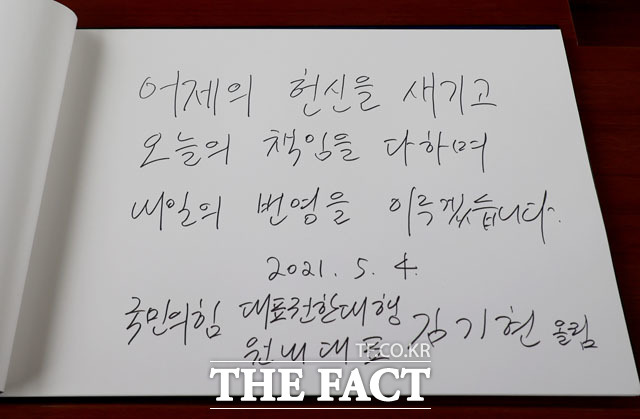 어제의 헌신을 새기고
오늘의 책임을 다하며
내일의 번영을 이루겠습니다.
2021. 5. 4.
국민의힘 대표권한대행
원내대표 김기현 올림
TF.CO.KR
THE FACT